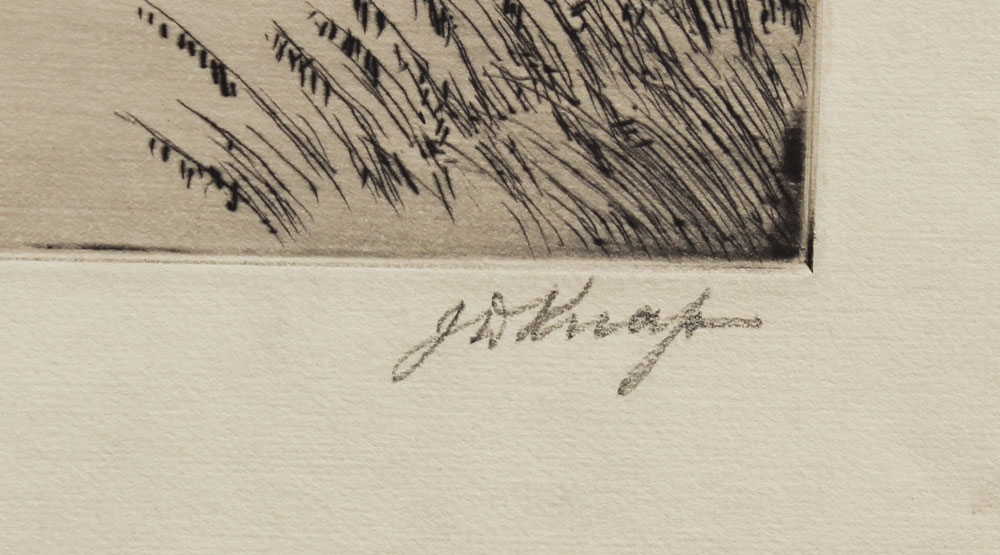 J D Knap